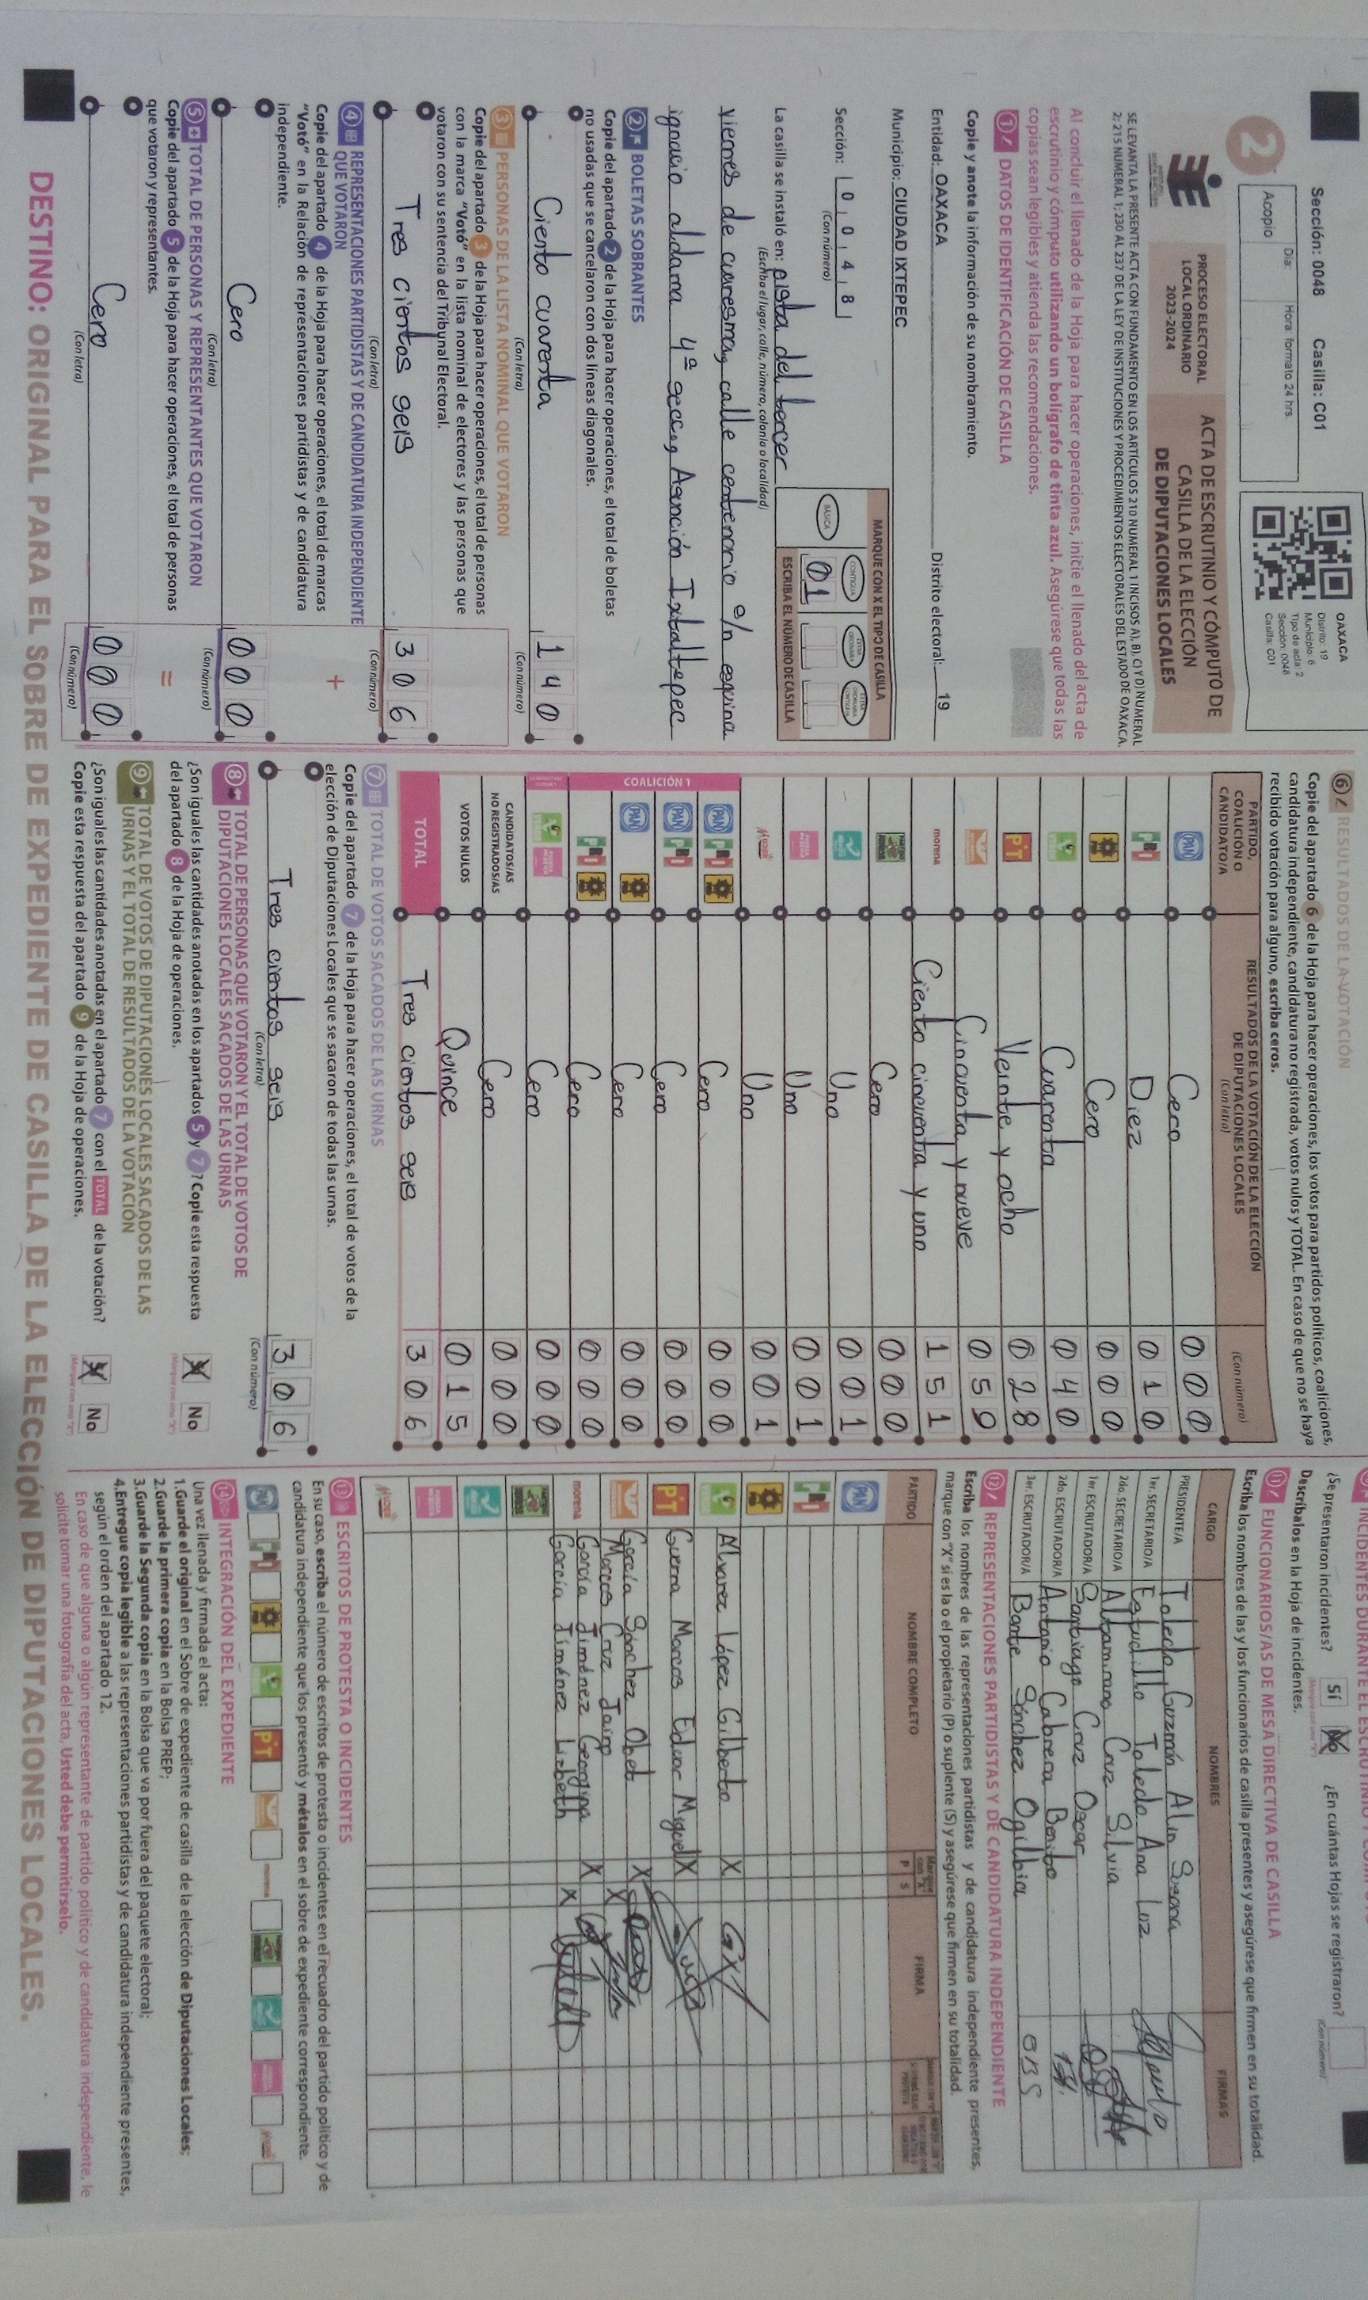 Sección: 0048 Casilla: C01
Día: Hora: formato 24 hrs.
Acopio
2
OAXACA
Distrito: 19
Municipio: 6
Tipo de acta: 2
Sección: 0048
Casilla: C01
PROCESO ELECTORAL
LOCAL ORDINARIO
2023-2024
ACTA DE ESCRUTINIO Y CÓMPUTO DE
CASILLA DE LA ELECCIÓN
DE DIPUTACIONES LOCALES
SE LEVANTA LA PRESENTE ACTA CON FUNDAMENTO EN LOS ARTÍCULOS 210 NUMERAL 1 INCISOS A), B), C) Y D) NUMERAL
2; 215 NUMERAL 1; 230 AL 237 DE LA LEY DE INSTITUCIONES Y PROCEDIMIENTOS ELECTORALES DEL ESTADO DE OAXACA.
Al concluir el llenado de la Hoja para hacer operaciones, inicie el llenado del acta de
escrutinio y cómputo utilizando un bolígrafo de tinta azul. Asegúrese que todas las
copias sean legibles y atienda las recomendaciones.
1 DATOS DE IDENTIFICACIÓN DE CASILLA
Copie y anote la información de su nombramiento.
Entidad: OAXACA Distrito electoral: 19
Municipio: CIUDAD IXTEPEC
Sección: 0 0 4 8
(Con número)
MARQUE CON X EL TIPO DE CASILLA
BÁSICA CONTIGUA
01
ESCRIBA EL NÚMERO DE CASILLA
La casilla se instaló en: pista del tercer
(Escriba el lugar, calle, número, colonia o localidad)
viernes de cuaresma, calle centenario s/n esquina
ignacio aldama 4ª secc., Asunción Ixtaltepec
2 BOLETAS SOBRANTES
Copie del apartado 2 de la Hoja para hacer operaciones, el total de boletas
no usadas que se cancelaron con dos líneas diagonales.
Ciento cuarenta 1 4 0
(Con letra) (Con número)
3 PERSONAS DE LA LISTA NOMINAL QUE VOTARON
Copie del apartado 3 de la Hoja para hacer operaciones, el total de personas
con la marca "Votó" en la lista nominal de electores y las personas que
votaron con su sentencia del Tribunal Electoral.
Tres cientos seis 3 0 6
(Con letra) (Con número)
4 REPRESENTACIONES PARTIDISTAS Y DE CANDIDATURA INDEPENDIENTE
QUE VOTARON
Copie del apartado 4 de la Hoja para hacer operaciones, el total de marcas
"Votó" en la Relación de representaciones partidistas y de candidatura
independiente.
+
Cero 0 0 0
(Con letra) (Con número)
5 TOTAL DE PERSONAS Y REPRESENTANTES QUE VOTARON
Copie del apartado 5 de la Hoja para hacer operaciones, el total de personas
que votaron y representantes.
=
Cero 0 0 0
(Con letra) (Con número)
6 RESULTADOS DE LA VOTACIÓN
Copie del apartado 6 de la Hoja para hacer operaciones, los votos para partidos políticos, coaliciones,
candidatura independiente, candidatura no registrada, votos nulos y TOTAL. En caso de que no se haya
recibido votación para alguno, escriba ceros.
PARTIDO,
COALICIÓN O
CANDIDATO/A
RESULTADOS DE LA VOTACIÓN DE LA ELECCIÓN
DE DIPUTACIONES LOCALES
(Con letra) (Con número)
PAN Cero 0 0 0
PRI Diez 0 1 0
Cero 0 0 0
Cuarenta 0 4 0
PT Veinte y ocho 0 2 8
Cincuenta y nueve 0 5 9
morena Ciento cincuenta y uno 1 5 1
Cero 0 0 0
Uno 0 0 1
Uno 0 0 1
Uno 0 0 1
COALICIÓN 1
PAN PRI Cero 0 0 0
PAN PRI Cero 0 0 0
PAN Cero 0 0 0
PRI Cero 0 0 0
Cero 0 0 0
CANDIDATOS/AS
NO REGISTRADOS/AS Cero 0 0 0
VOTOS NULOS Quince 0 1 5
TOTAL Tres cientos seis 3 0 6
7 TOTAL DE VOTOS SACADOS DE LAS URNAS
Copie del apartado 7 de la Hoja para hacer operaciones, el total de votos de la
elección de Diputaciones Locales que se sacaron de todas las urnas.
Tres cientos seis 3 0 6
(Con letra) (Con número)
8 TOTAL DE PERSONAS QUE VOTARON Y EL TOTAL DE VOTOS DE
DIPUTACIONES LOCALES SACADOS DE LAS URNAS
¿Son iguales las cantidades anotadas en los apartados 5 y 7? Copie esta respuesta
del apartado 8 de la Hoja de operaciones.
No
9 TOTAL DE VOTOS DE DIPUTACIONES LOCALES SACADOS DE LAS
URNAS Y EL TOTAL DE RESULTADOS DE LA VOTACIÓN
¿Son iguales las cantidades anotadas en el apartado 7 con el TOTAL de la votación?
Copie esta respuesta del apartado 9 de la Hoja de operaciones.
No
¿Se presentaron incidentes? Sí No ¿En cuántas Hojas se registraron?
(Con número)
Descríbalos en la Hoja de incidentes.
11 FUNCIONARIOS/AS DE MESA DIRECTIVA DE CASILLA
Escriba los nombres de las y los funcionarios de casilla presentes y asegúrese que firmen en su totalidad.
CARGO NOMBRES FIRMAS
PRESIDENTE/A Toledo Guzmán Alin Susana
1er. SECRETARIO/A Estudillo Toledo Ana Luz
2do. SECRETARIO/A Altamirano Cruz Silvia
1er. ESCRUTADOR/A Santiago Cruz Oscar
2do. ESCRUTADOR/A Antonio Cabrera Benito
3er. ESCRUTADOR/A Bante Sánchez Ogilbia OBS
12 REPRESENTACIONES PARTIDISTAS Y DE CANDIDATURA INDEPENDIENTE
Escriba los nombres de las representaciones partidistas y de candidatura independiente presentes,
marque con "X" si es la o el propietario (P) o suplente (S) y asegúrese que firmen en su totalidad.
PARTIDO NOMBRE COMPLETO P S FIRMA
PAN
PRI
Alvarez López Gilberto X
PT Guerra Marcos Eduar Miguel X
García Sánchez Obed X
Marcos Cruz Jairo X
morena García Jiménez Georgina X
García Jiménez Lizbeth X
13 ESCRITOS DE PROTESTA O INCIDENTES
En su caso, escriba el número de escritos de protesta o incidentes en el recuadro del partido político y de
candidatura independiente que los presentó y métalos en el sobre de expediente correspondiente.
PAN PRI PT morena
14 INTEGRACIÓN DEL EXPEDIENTE
Una vez llenada y firmada el acta:
1.Guarde el original en el Sobre de expediente de casilla de la elección de Diputaciones Locales;
2.Guarde la primera copia en la Bolsa PREP;
3.Guarde la Segunda copia en la Bolsa que va por fuera del paquete electoral;
4.Entregue copia legible a las representaciones partidistas y de candidatura independiente presentes,
según el orden del apartado 12.
En caso de que alguna o algún representante de partido político y de candidatura independiente, le
solicite tomar una fotografía del acta, Usted debe permitírselo.
DESTINO: ORIGINAL PARA EL SOBRE DE EXPEDIENTE DE CASILLA DE LA ELECCIÓN DE DIPUTACIONES LOCALES.